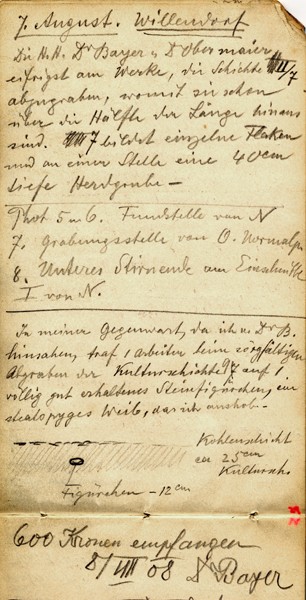 7. August. Willendorf
Die H.H. Dr Bayer u. Dr Obermaier
eifrigst am Werke, die Schichte II/7
abzugraben, womit zu schon
über die Hälfte der Länge hinaus
sind. 7 bildet einzelne Flecken
und an einer Stelle eine 40 cm
tiefe Herdgrube –
Phot 5 u 6. Fundstelle von N
7. Grabungsstelle von O. Normalp.
8. Unteres Stirnende am
I von N.
In meiner Gegenwart, da ich u. Dr B.
hinsahen, traf 1 Arbeiter beim sorgfältigen
Abgraben der Kulturschichte 7 auf 1
völlig gut erhaltenes Steinfigürchen, ein
steatopyges Weib, das ich aushob.
Kohlenschicht
ca 25 cm
Kultursch.
Figürchen – 12 cm
600 Kronen empfangen
8/VIII 08 Dr Bayer